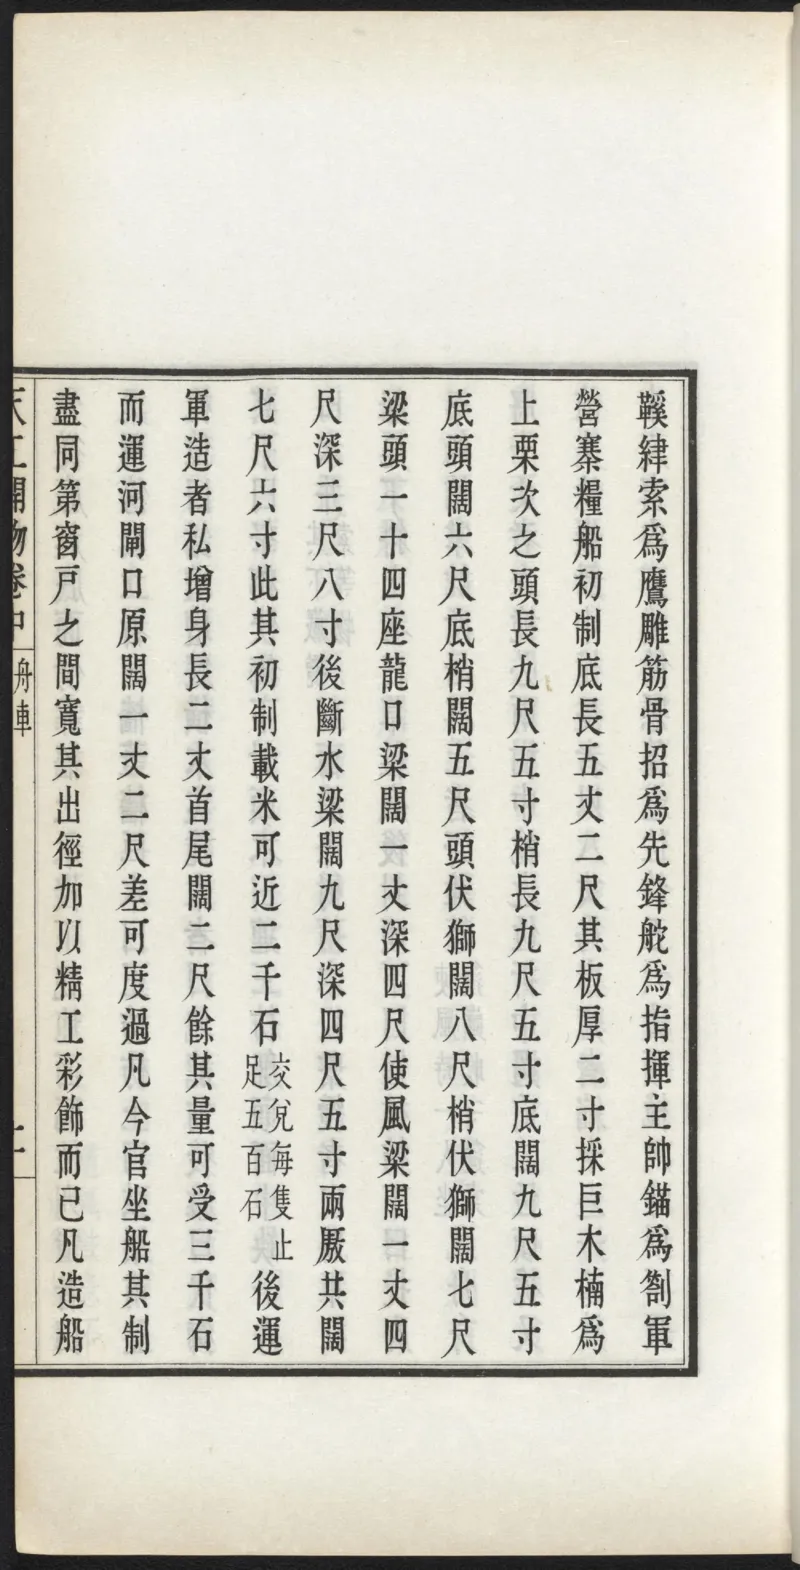 鞵繂索為鷹雕筋骨招為先鋒舵為指揮主帥錨為劄軍
營寨糧船初制底長五丈二尺其板厚二寸採巨木楠為
上栗次之頭長九尺五寸梢長九尺五寸底闊九尺五寸
底頭闊六尺底梢闊五尺頭伏獅闊八尺梢伏獅闊七尺
梁頭一十四座龍口梁闊一丈深四尺使風梁闊一丈四
尺深三尺八寸後斷水梁闊九尺深四尺五寸兩厫共闊
七尺六寸此其初制載米可近二千石交兌每隻止足五百石後運
軍造者私增身長二丈首尾闊二尺餘其量可受三千石
而運河閘口原闊一丈二尺差可度過凡今官坐船其制
盡同第窗戶之間寬其出徑加以精工彩飾而已凡造船
天工開物卷中
舟車